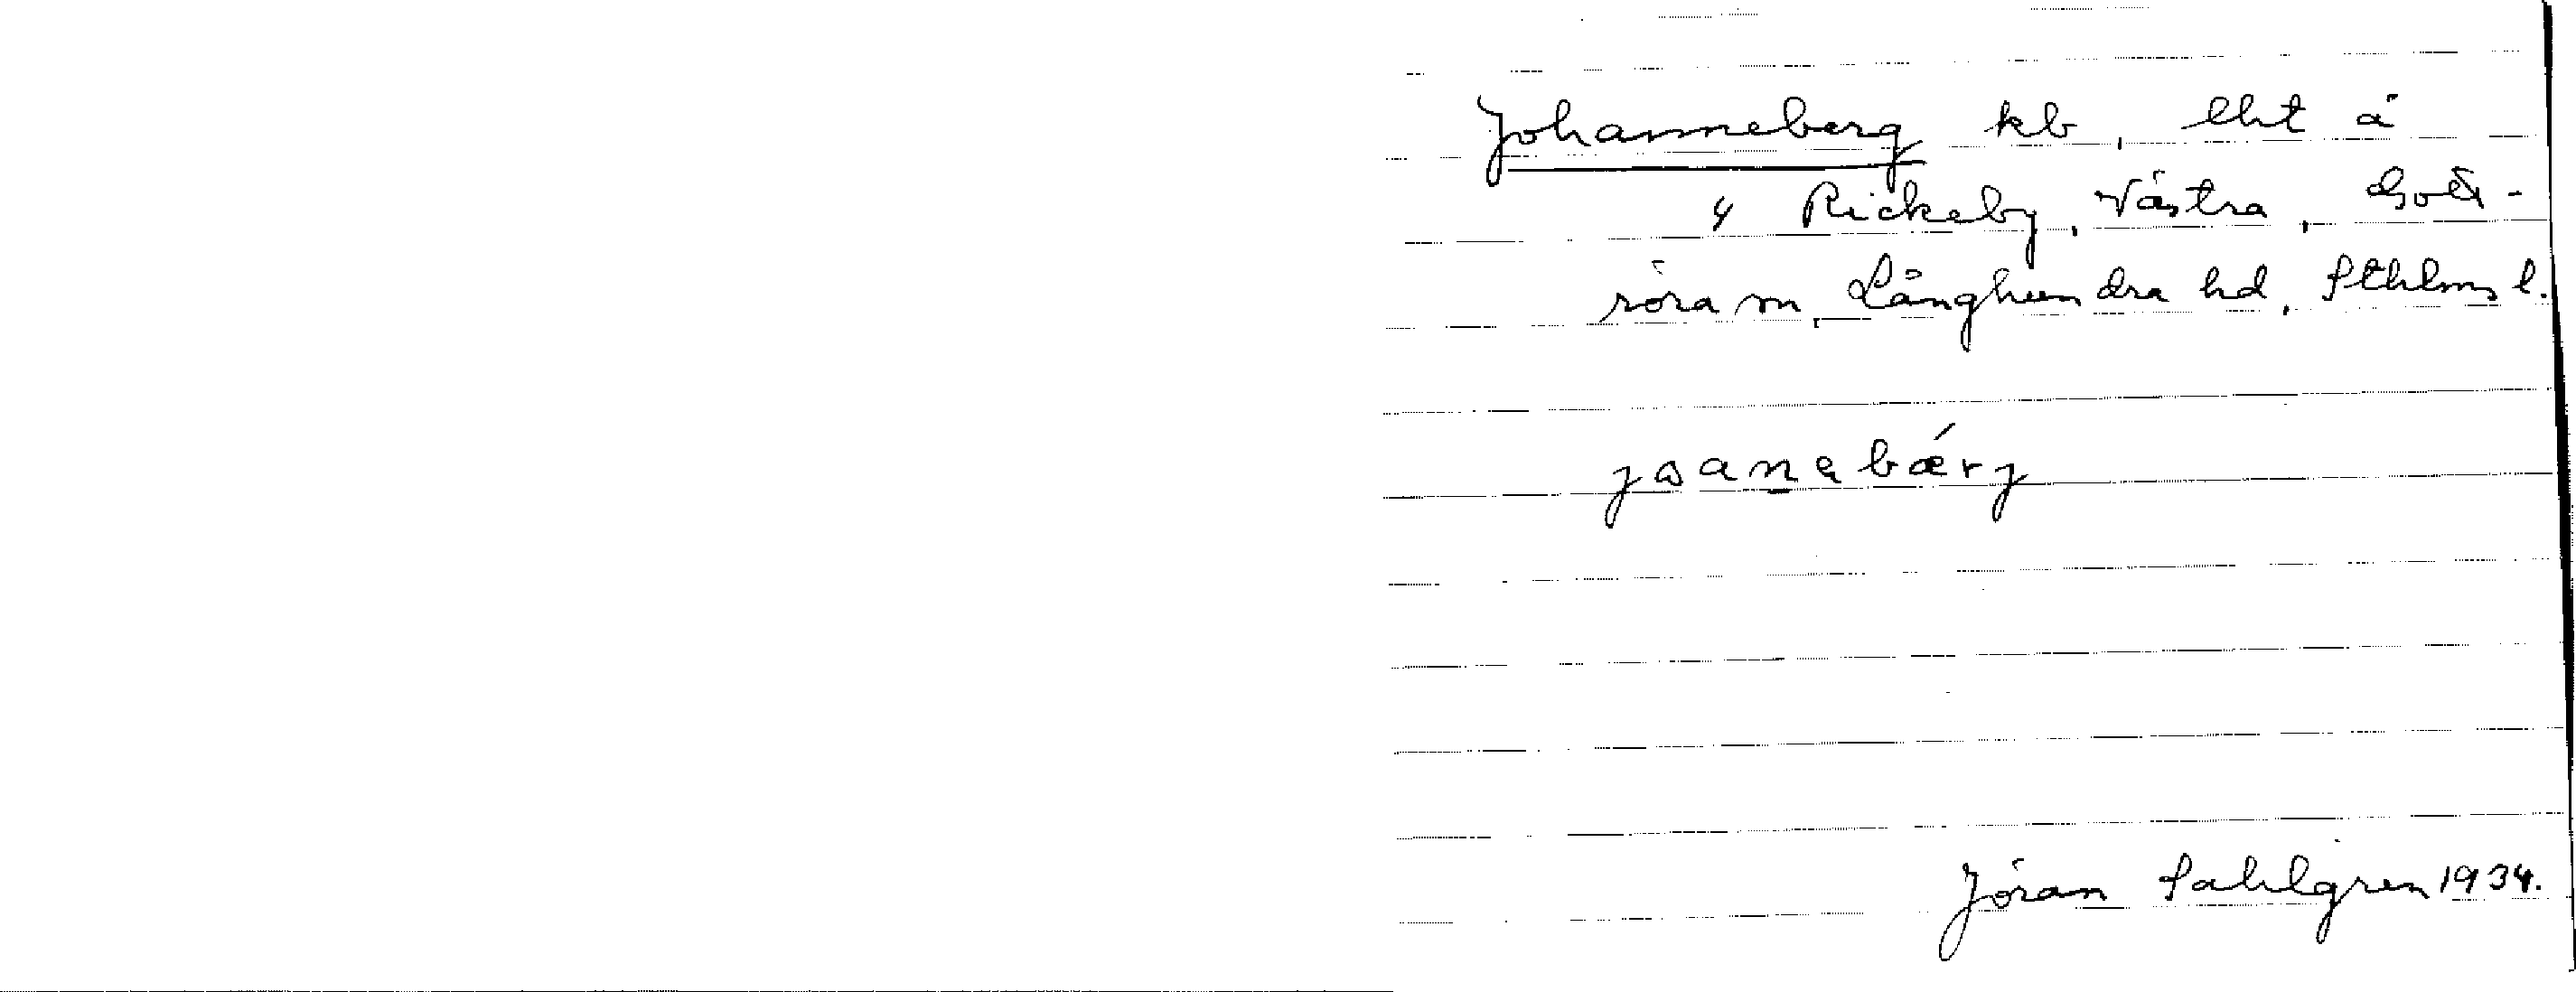 Johanneberg kb, lht å
4 Rickeby, Västra, Gott-
röra sn, Långhundra hd, Sthlms l.
jωanebǽrj
Jöran Sahlgren 1934.